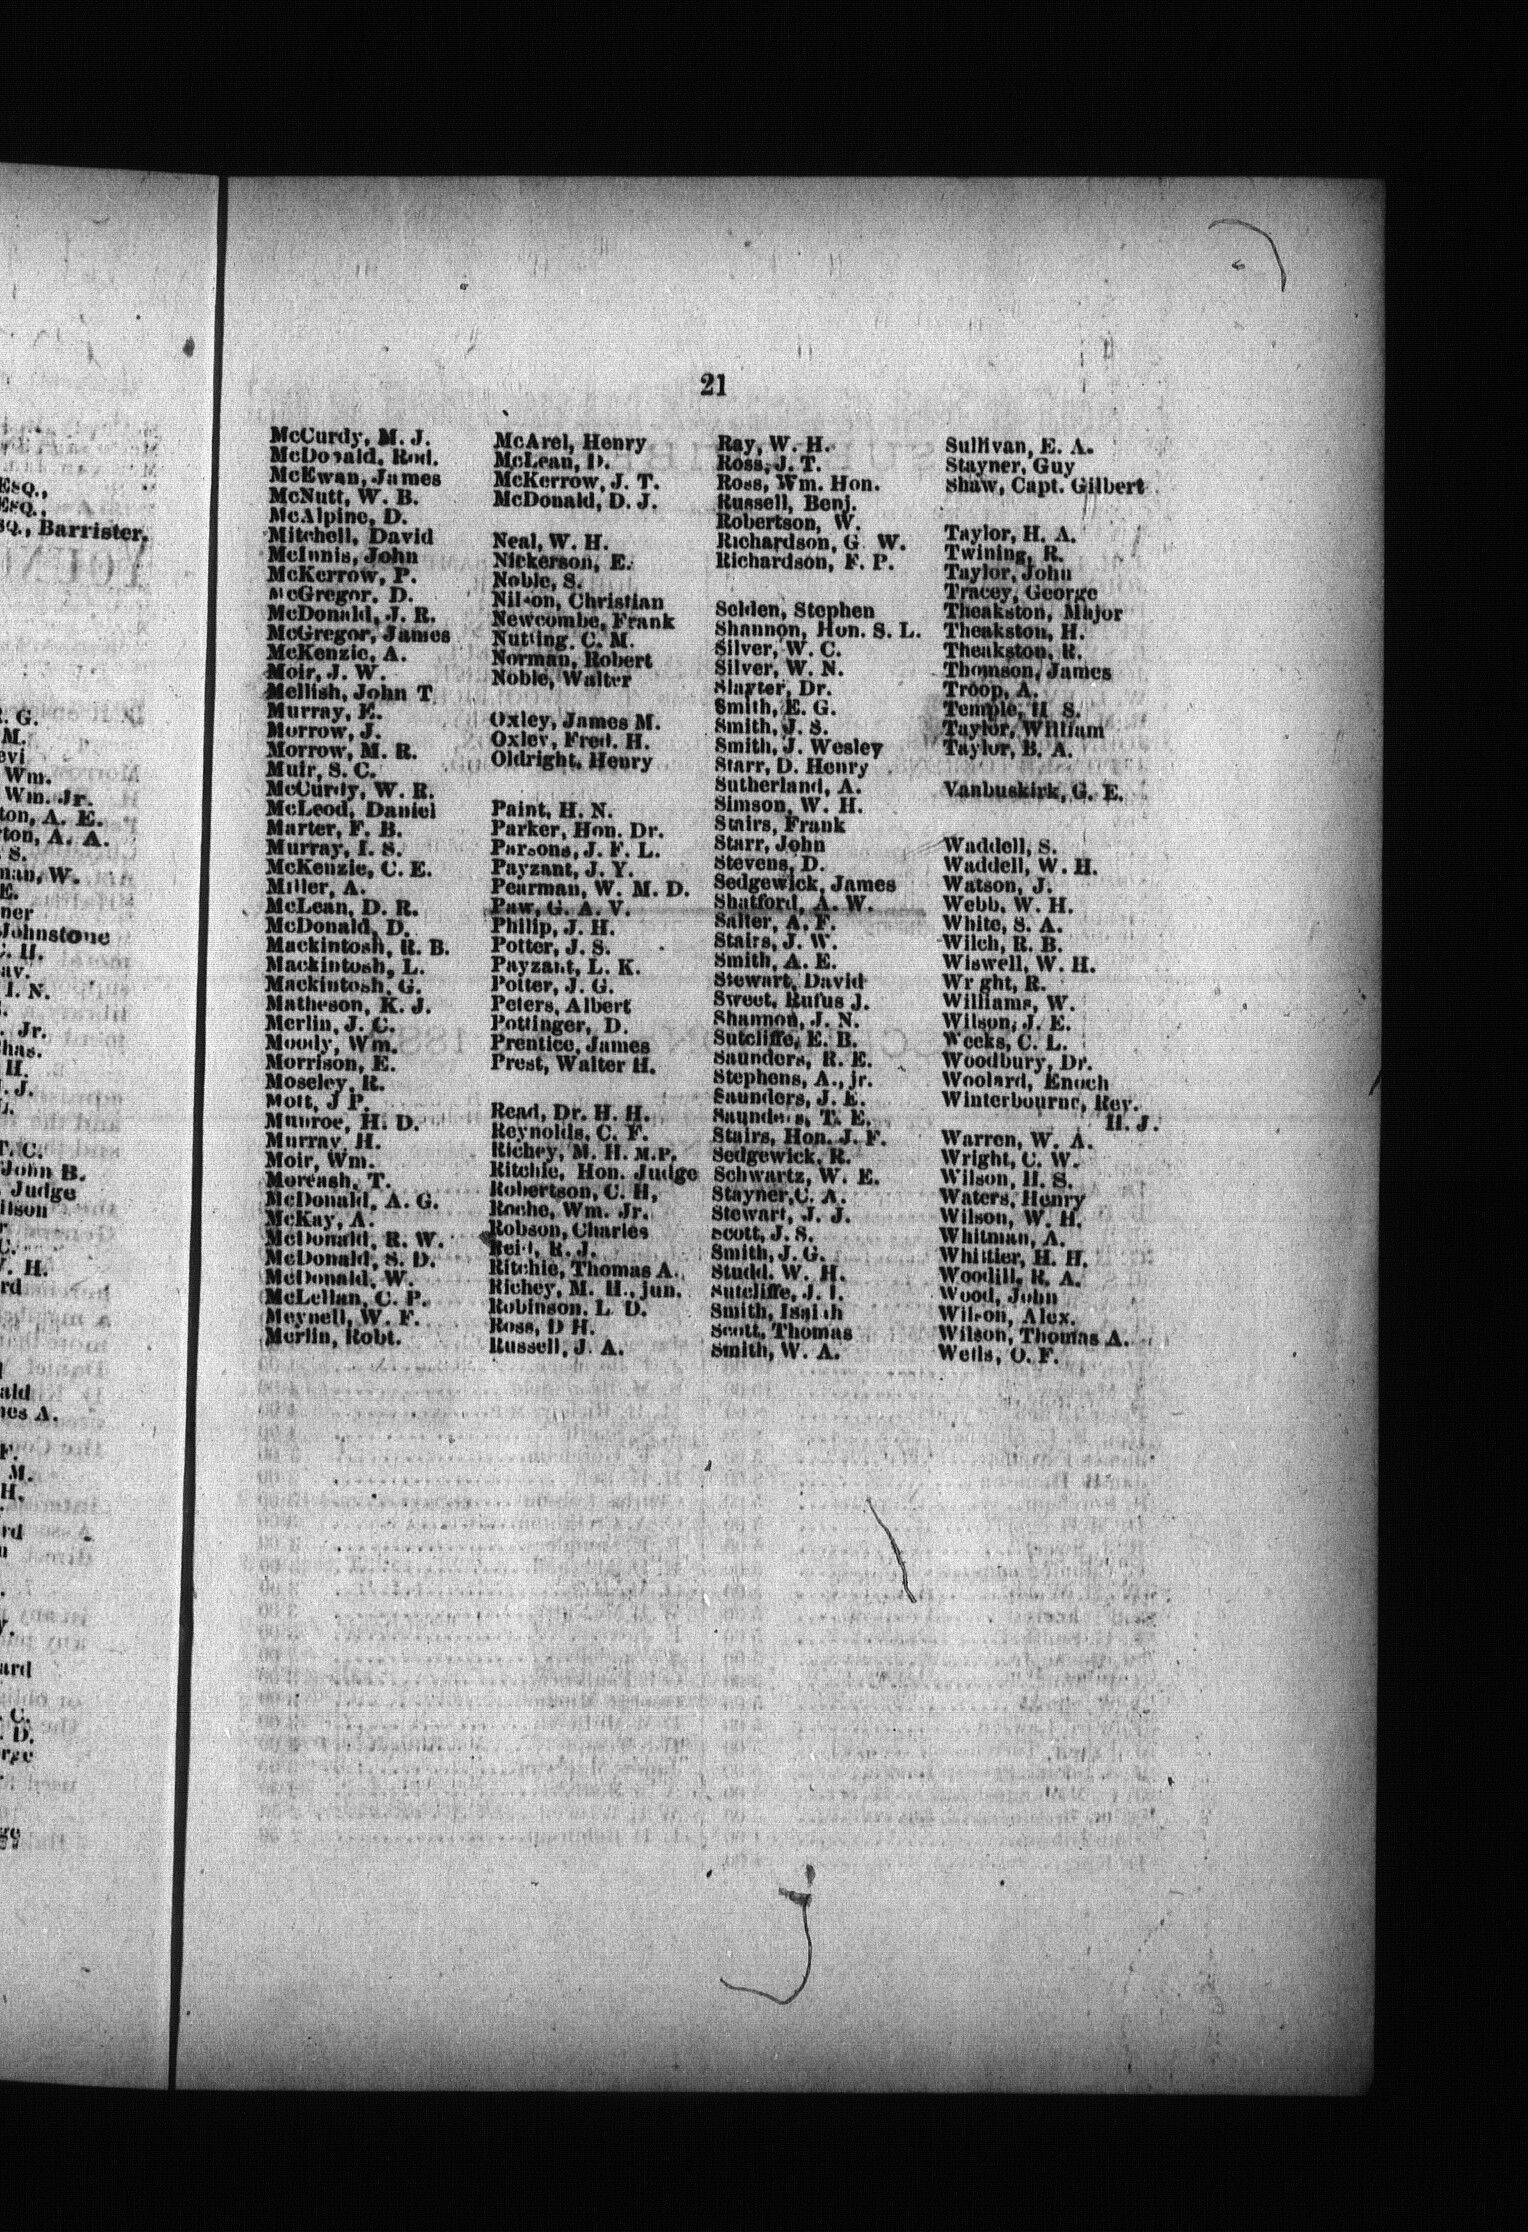 21
McCurdy, M. J.
McDonald, Rod.
McEwan, James
McNutt, W. B.
McAlpine, D.
Mitchell, David
McInnis, John
McKerrow, P.
McGregor, D.
McDonald, J. R.
McGregor, James
McKenzie, A.
Moir, J. W.
Mellish, John T
Murray, E.
Morrow, J.
Morrow, M. R.
Muir, S. C.
McCurdy, W. R.
McLeod, Daniel
Marter, F. B.
Murray, I. S.
McKenzie, C. E.
Miller, A.
McLean, D. R.
McDonald, D.
Mackintosh, R. B.
Mackintosh, L.
Mackintosh, G.
Matheson, K. J.
Merlin, J. C.
Moody, Wm.
Morrison, E.
Moseley, R.
Mott, J P.
Munroe, H. D.
Murray, H.
Moir, Wm.
Moreash, T.
McDonald, A. G.
McKay, A.
McDonald, R. W.
McDonald, S. D.
McDonald, W.
McLellan, C. P.
Meynell, W. F.
Merlin, Robt.
McArel, Henry
McLean, D.
McKerrow, J. T.
McDonald, D. J.
Neal, W. H.
Nickerson, E.
Noble, S.
Nilson, Christian
Newcombe, Frank
Nutting, C. M.
Norman, Robert
Noble, Walter
Oxley, James M.
Oxley, Fred. H.
Oldright, Henry
Paint, H. N.
Parker, Hon. Dr.
Parsons, J. F. L.
Payzant, J. Y.
Pearman, W. M. D.
Paw, G. A. V.
Philip, J. H.
Potter, J. S.
Payzant, L. K.
Potter, J. G.
Peters, Albert
Pottinger, D.
Prentice, James
Prest, Walter H.
Read, Dr. H. H.
Reynolds, C. F.
Richey, M. H. M.P.
Ritchie, Hon. Judge
Robertson, C. H,
Roche, Wm. Jr.
Robson, Charles
Reid, R. J.
Ritchie, Thomas A.
Richey, M. H., jun.
Robinson. L D.
Ross, D H.
Russell, J. A.
Ray, W. H.
Ross, J. T.
Ross, Wm. Hon.
Russell, Benj.
Robertson, W.
Richardson, G W.
Richardson, F. P.
Selden, Stephen
Shannon, Hon. S. L.
Silver, W. C.
Silver, W. N.
Slayter, Dr.
Smith, E. G.
Smith, J. S.
Smith, J. Wesley
Starr, D. Henry
Sutherland, A.
Simson, W. H.
Stairs, Frank
Starr, John
Stevens, D.
Sedgewick, James
Shatford, A. W.
Salter, A. F.
Stairs, J. W.
Smith, A. E.
Stewart, David
Sweet, Rufus J.
Shannon, J. N.
Sutcliffe, E. B.
Saunders, R. E.
Stephens, A., jr.
Saunders, J. E.
Saunders, T. E.
Stairs, Hon. J. F.
Sedgewick, R.
Schwartz, W. E.
Stayner, C. A.
Stewart, J. J.
Scott, J. S.
Smith, J. G.
Studd, W. H.
Sutcliffe, J. I.
Smith, Isaiah
Scott, Thomas
Smith, W. A.
Sullivan, E. A.
Stayner, Guy
Shaw, Capt. Gilbert
Taylor, H. A.
Twining, R.
Taylor, John
Tracey, George
Theakston, Major
Theakston, H.
Theakston, R.
Thomson, James
Troop, A.
Temple, H S.
Taylor, William
Taylor, B. A.
Vanbuskirk, G. E.
Waddell, S.
Waddell, W. H.
Watson, J.
Webb, W. H.
White, S. A.
Wilch, R. B.
Wiswell, W. H.
Wright, R.
Williams, W.
Wilson, J. E.
Weeks, C. L.
Woodbury, Dr.
Woolard, Enoch
Winterbourne, Rev.
H. J.
Warren, W. A.
Wright, C. W.
Wilson, H. S.
Waters, Henry
Wilson, W. H.
Whitman, A.
Whittier, H. H.
Woodill, R. A.
Wood, John
Wilson, Alex.
Wilson, Thomas A.
Wells, O. F.